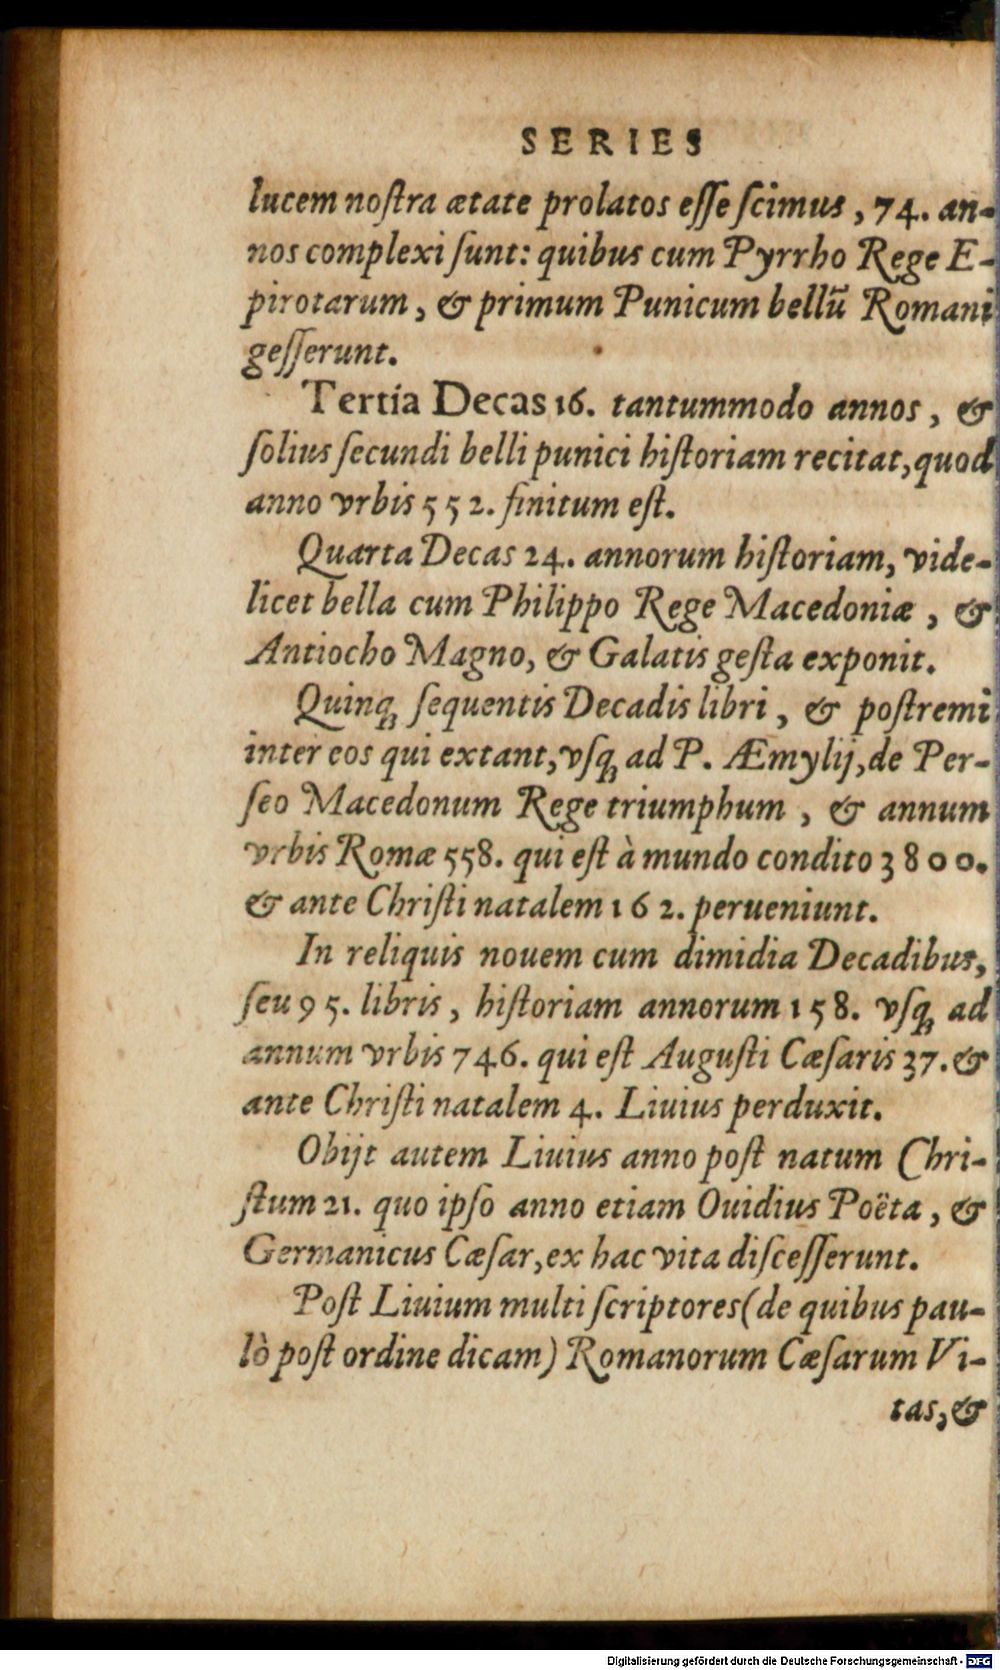 SERIES
lucem noſtra ætate prolatos eſſe ſcimus, 74. an-
nos complexi ſunt: quibus cum Pyrrho Rege E-
pirotarum, & primum Punicum bellū Romani
geſſerunt.
Tertia Decas 16. tantummodo annos, &
ſolius ſecundi belli punici hiſtoriam recitat, quod
anno vrbis 552. finitum eſt.
Quarta Decas 24. annorum hiſtoriam, vide-
licet bella cum Philippo Rege Macedoniæ, &
Antiocho Magno, & Galatis geſta exponit.
Quinq; ſequentis Decadis libri, & poſtremi
inter eos qui extant, vſq; ad P. Æmylij, de Per-
ſeo Macedonum Rege triumphum, & annum
vrbis Romæ 558. qui eſt à mundo condito 3800.
& ante Chriſti natalem 162. perueniunt.
In reliquis nouem cum dimidia Decadibus,
ſeu 95. libris, hiſtoriam annorum 158. vſq; ad
annum vrbis 746. qui eſt Auguſti Cæſaris 37. &
ante Chriſti natalem 4. Liuius perduxit.
Obijt autem Liuius anno poſt natum Chri-
ſtum 21. quo ipſo anno etiam Ouidius Poëta, &
Germanicus Cæſar, ex hac vita diſceſſerunt.
Poſt Liuium multi ſcriptores (de quibus pau-
lò poſt ordine dicam) Romanorum Cæſarum Vi-
tas, &
Digitalisierung gefördert durch die Deutsche Forschungsgemeinschaft - DFG